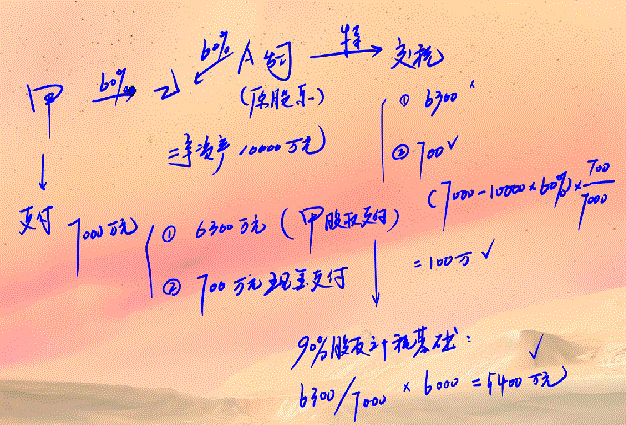 甲 60% → 乙 ← 60% A公司 特 → 交税
(原股东)
① 6300 ×
=净资产10000万元)
② 700 ✓
(7000-10000×60%)×700/7000
=100万 ✓
支付 7000万元
① 6300万元(甲股权支付)
② 700万元现金支付
90%股权计税基础:
6300/7000 × 6000 = 5400万元 ✓